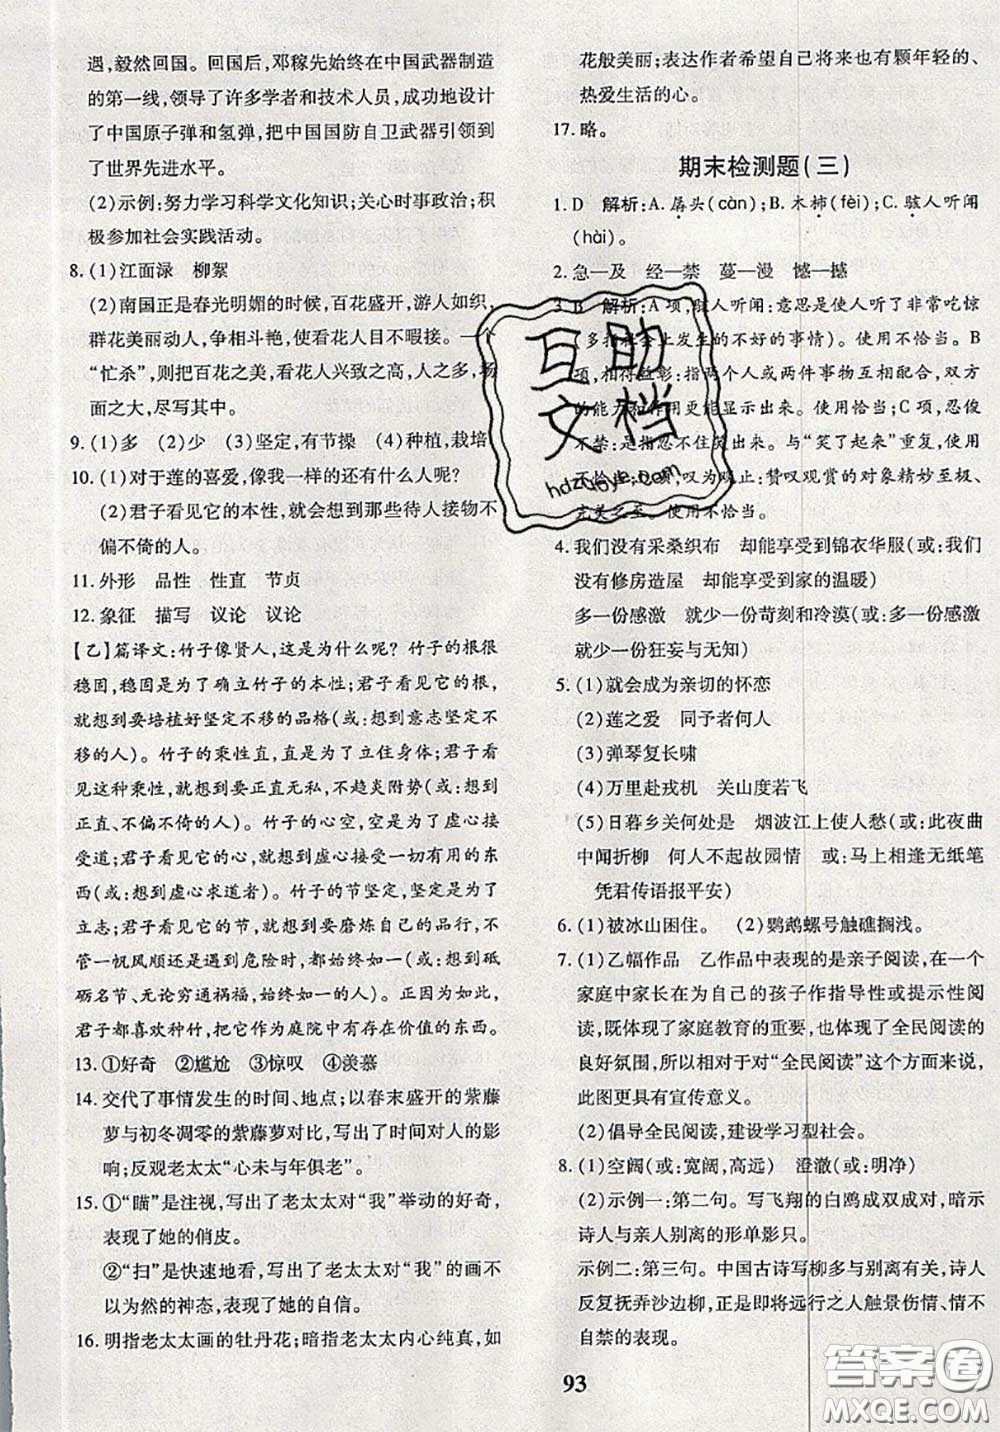 遇,毅然回国。回国后,邓稼先始终在中国武器制造
的第一线,领导了许多学者和技术人员,成功地设计
了中国原子弹和氢弹,把中国国防自卫武器引领到
了世界先进水平。
(2)示例:努力学习科学文化知识;关心时事政治;积
极参加社会实践活动。
8.(1)江面渌 柳絮
(2)南国正是春光明媚的时候,百花盛开,游人如织,
群花美丽动人,争相斗艳,使看花人目不暇接。一个
“忙杀”,则把百花之美,看花人兴致之高,人之多,场
面之大,尽写其中。
9.(1)多 (2)少 (3)坚定,有节操 (4)种植,栽培
10.(1)对于莲的喜爱,像我一样的还有什么人呢?
(2)君子看见它的本性,就会想到那些待人接物不
偏不倚的人。
11.外形 品性 性直 节贞
12.象征 描写 议论 议论
【乙】篇译文:竹子像贤人,这是为什么呢?竹子的根很
稳固,稳固是为了确立竹子的本性;君子看见它的根,
就想到要培植好坚定不移的品格(或:想到意志坚定不移
的人)。竹子的秉性直,直是为了立住身体;君子看见
这种秉性,就想到要正直无私,不趋炎附势(或:想到
正直、不偏不倚的人)。竹子的心空,空是为了虚心接
受道;君子看见它的心,就想到要虚心接一切有用的东
西(或:想到虚心求道者)。竹子的节坚定,坚定是为了
立志;君子看见它的节,就想到要磨炼自己的品行,不
管一帆风顺还是遇到危险时,都始终如一(或:想到砥
砺名节、无论穷通祸福,始终如一的人)。正因为如此,
君子都喜欢种竹,把它作为庭院中有存在价值的东西。
13.①好奇 ②尴尬 ③惊叹 ④羡慕
14.交代了事情发生的时间、地点;以春末盛开的紫藤
萝与初冬凋零的紫藤萝对比,写出了时间对人的影
响;反观老太太“心未与年俱老”。
15.①“瞄”是注视,写出了老太太对“我”举动的好奇,
表现了她的俏皮。
②“扫”是快速地看,写出了老太太对“我”的画不
以为然的神态,表现了她的自信。
16.明指老太太画的牡丹花;暗指老太太内心纯真,如
花般美丽;表达作者希望将来也有颗年轻的、
热爱生活的心。
17.略。
期末检测题(三)
1.D 解析:A.孱头(càn);B.木柿(fèi);C.骇人听闻
(hài)。
2.急—及 经—禁 蔓—漫 憾—撼
3.B 解析:A项,骇人听闻:意思是使人听了非常吃惊
(多指社会上发生的不好的事情)。使用不恰当。B
项,相得益彰:指两个人或两件事物互相配合,双方
的能力和作用更能显示出来。使用恰当;C项,忍俊
不禁:是指忍不住发笑。与“笑了起来”重复,使用
不恰当;D项,叹为观止:赞叹观赏的对象精妙至极、
完美之至。使用不恰当。
4.我们没有采桑织布 却能享受到锦衣华服(或:我们
没有修房造屋 却能享受到家的温暖)
多一份感激 就少一份苛刻和冷漠(或:多一份感激
就少一份狂妄与无知)
5.(1)就会成为亲切的怀恋
(2)莲之爱 同予者何人
(3)弹琴复长啸
(4)万里赴戎机 关山度若飞
(5)日暮乡关何处是 烟波江上使人愁(或:此夜曲
中闻折柳 何人不起故园情 或:马上相逢无纸笔
凭君传语报平安)
6.(1)被冰山困住。 (2)鹦鹉螺号触礁搁浅。
7.(1)乙幅作品 乙作品中表现的是亲子阅读,在一个
家庭中家长在为自己的孩子作指导性或提示性阅
读,既体现了家庭教育的重要,也体现了全民阅读的
良好氛围,因而相对于对“全民阅读”这个方面来说,
此图更具有宣传意义。
(2)倡导全民阅读,建设学习型社会。
8.(1)空阔(或:宽阔,高远) 澄澈(或:明净)
(2)示例一:第二句。写飞翔的白鸥成双成对,暗示
诗人与亲人别离的形单影只。
示例二:第三句。中国古诗写柳多与别离有关,诗人
反复抚弄沙边柳,正是即将远行之人触景伤情、情不
自禁的表现。
93
互助
文档
hdzuoye.com
答案圈
MXQE.COM